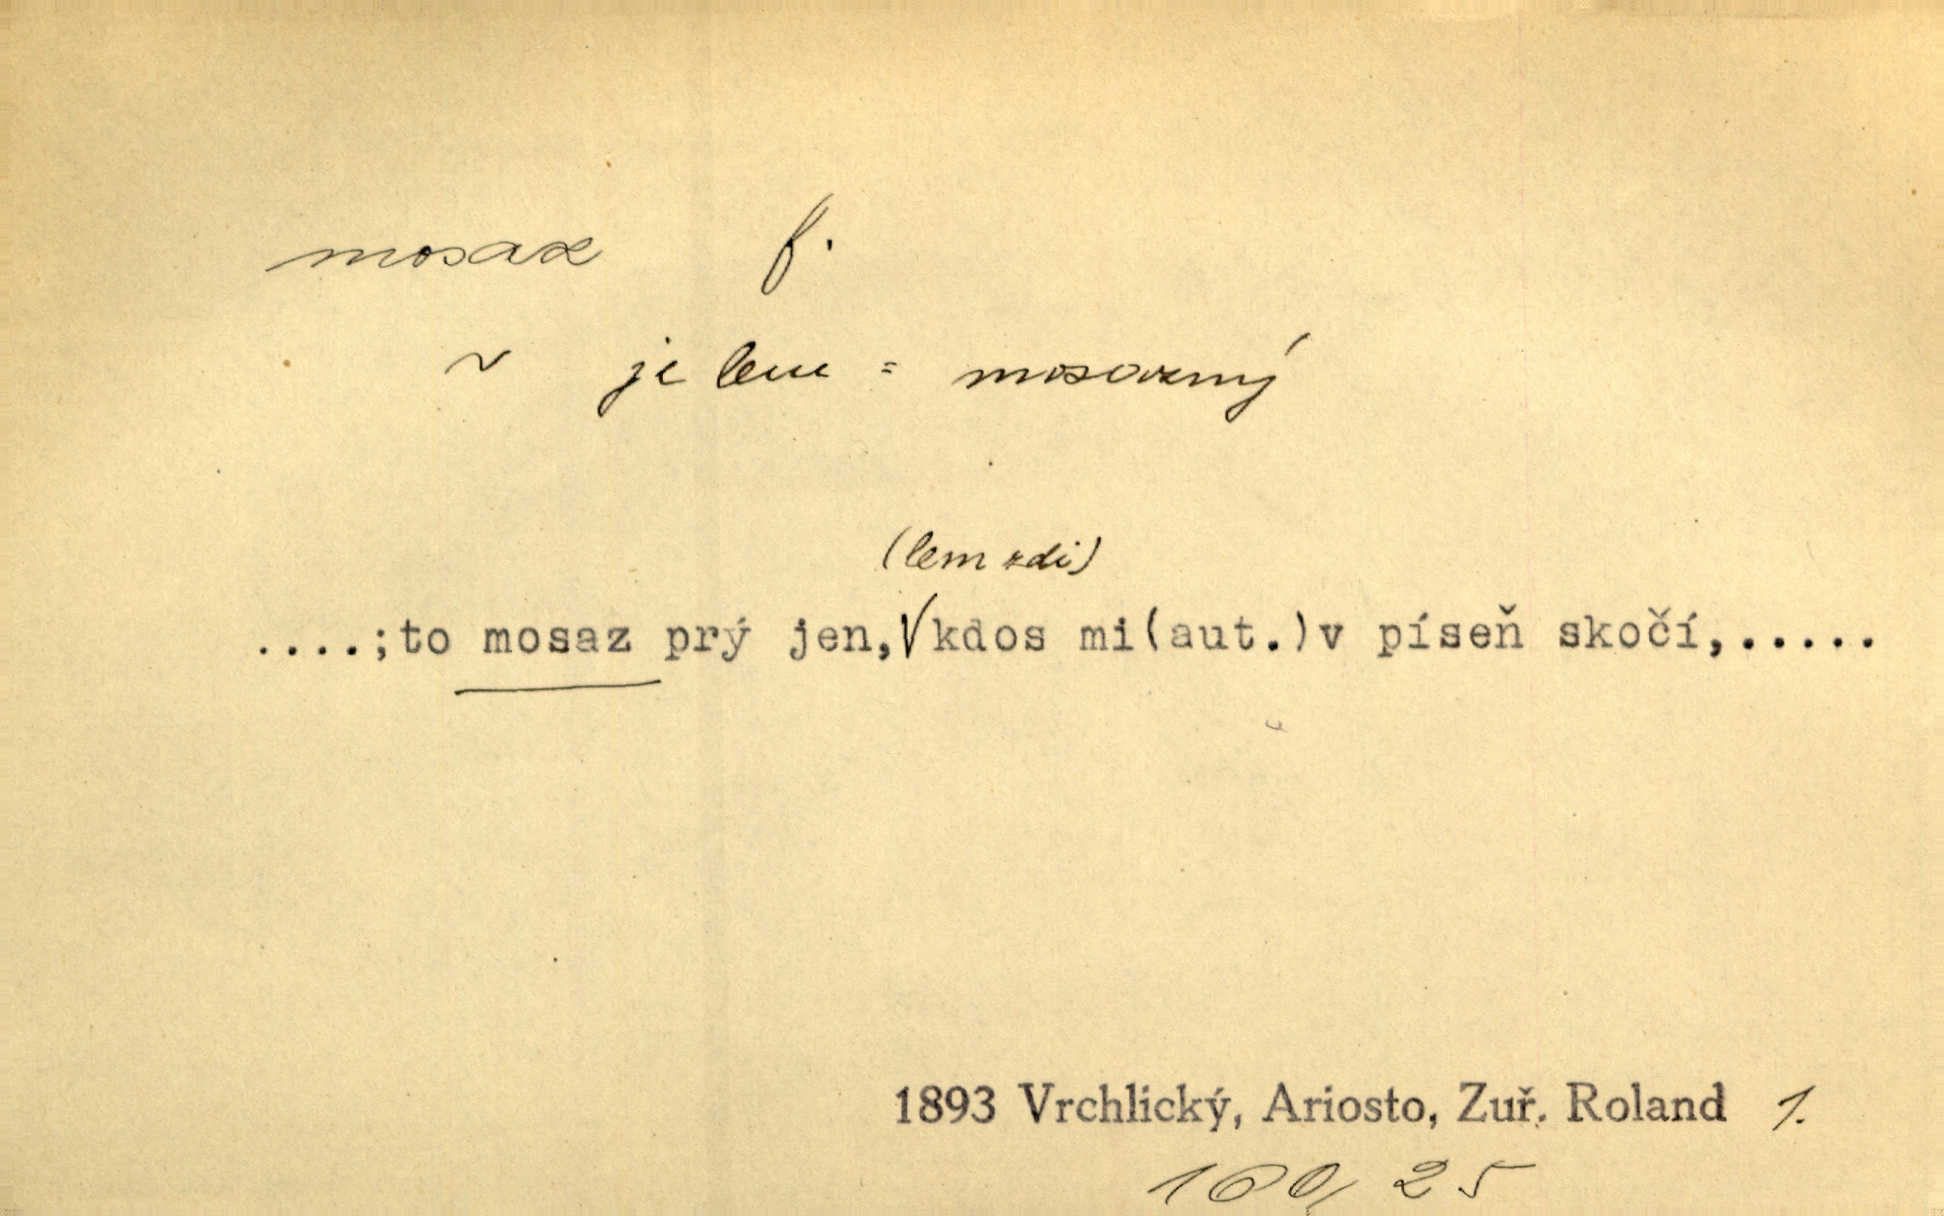 mosaz f.
~ je lem = mosazný
(lem zdi)
....;to mosaz prý jen,√kdos mi(aut.)v píseň skočí,.....
1893 Vrchlický, Ariosto, Zuř. Roland 1.
160, 25